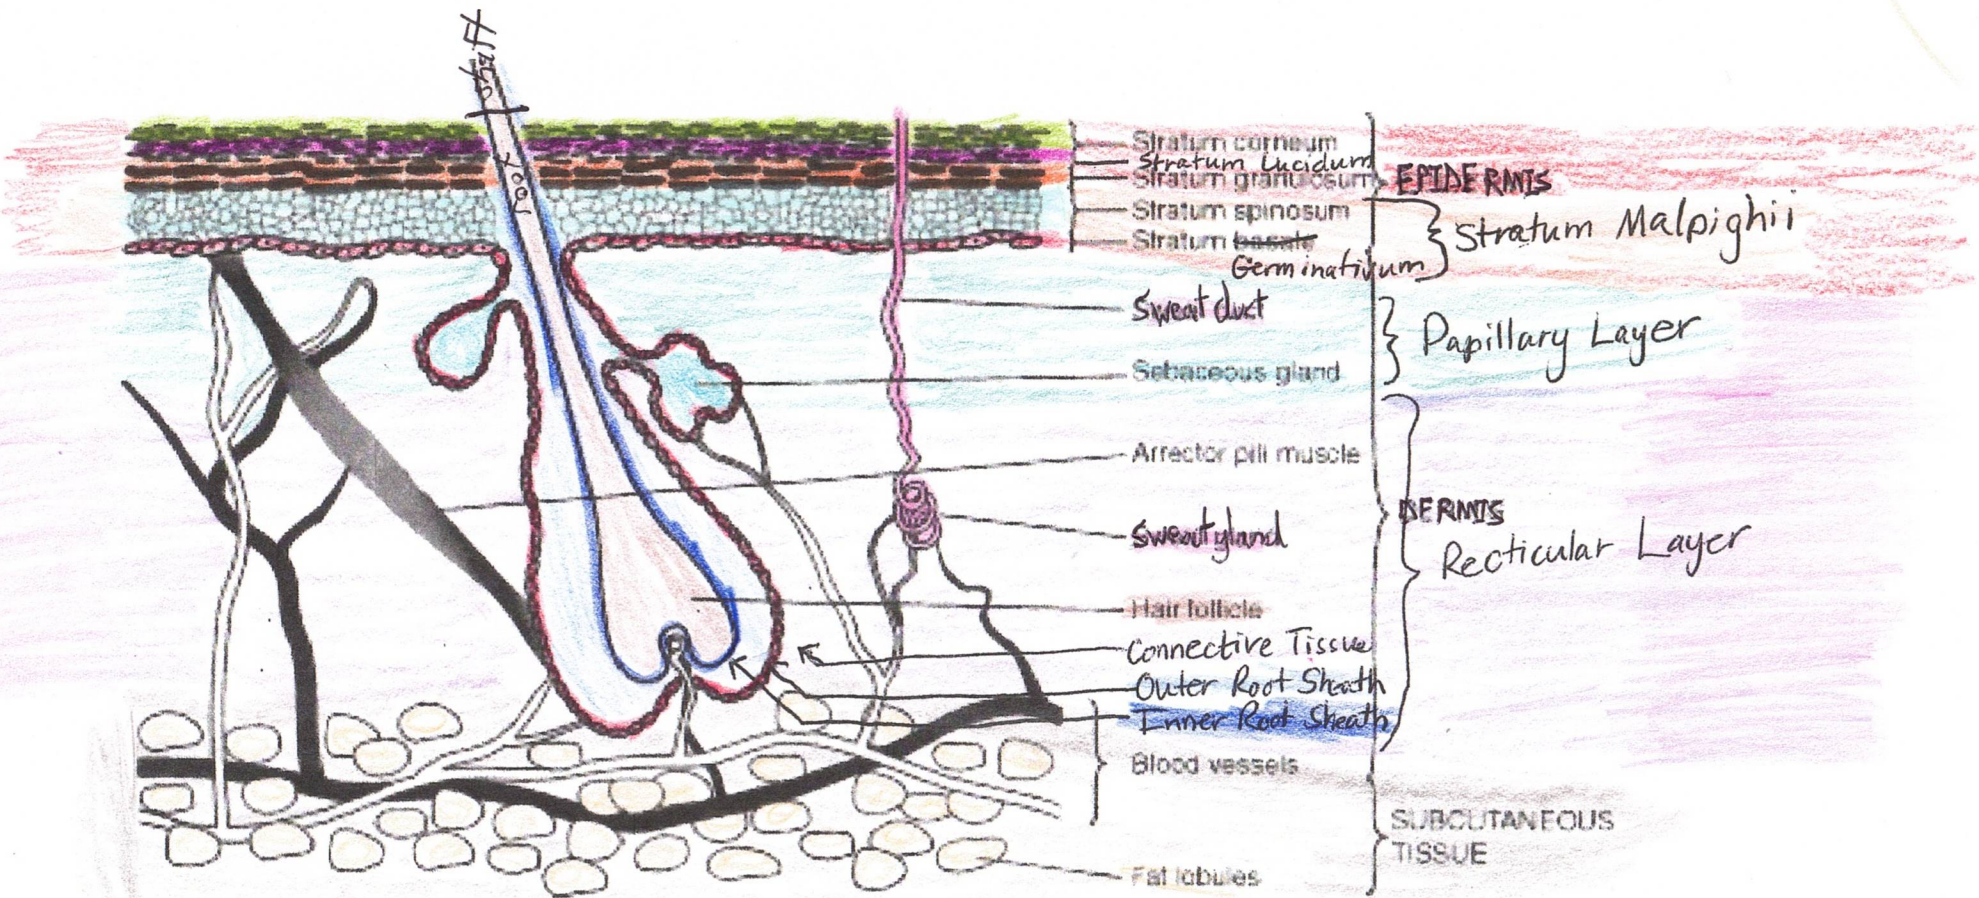 Shaft
root
Stratum corneum
Stratum Lucidum
Stratum granulosum
EPIDERMIS
Stratum spinosum
Stratum basale
Germinativum
Stratum Malpighii
Sweat duct
Papillary Layer
Sebaceous gland
Arrector pili muscle
DERMIS
Sweat gland
Recticular Layer
Hair follicle
Connective Tissue
Outer Root Sheath
Inner Root Sheath
Blood vessels
SUBCUTANEOUS
TISSUE
Fat lobules